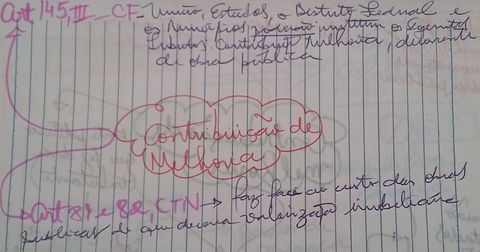 Art 145, III - CF - União, Estados, o Distrito Federal e
os Municípios poderão instituir os seguintes
tributos: Contribuição Melhoria, decorrente
de obra pública
Contribuição de
Melhoria
Art 81 e 82, CTN → faz face ao custo das obras
públicas de que decorra valorização imobiliária